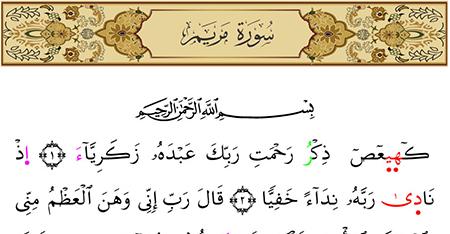 سُورَةُ مَرْيَم
بِسْمِ ٱللَّهِ ٱلرَّحْمَٰنِ ٱلرَّحِيمِ
كٓهيعٓصٓ ذِكْرُ رَحْمَتِ رَبِّكَ عَبْدَهُۥ زَكَرِيَّآءَ ﴿١﴾ إِذْ
نَادَىٰ رَبَّهُۥ نِدَآءً خَفِيًّا ﴿٢﴾ قَالَ رَبِّ إِنِّى وَهَنَ ٱلْعَظْمُ مِنِّى